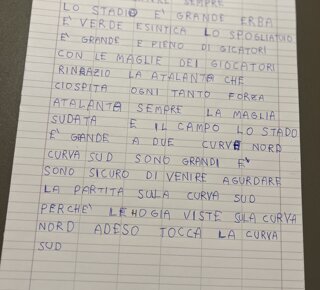 SEMPRE
LO STADIO E' GRANDE ERBA
E' VERDE ESINTICA LO SPOGLIATUIO
E' GRANDE E PIENO DI GICATORI
CON LE MAGLIE DEI GIOCATORI
RINRAZIO LA ATALANTA CHE
CIOSPITA OGNI TANTO FORZA
ATALANTA SEMPRE LA MAGLIA
SUDATA E IL CAMPO LO STADO
E' GRANDE A DUE CURVE NORD
CURVA SUD SONO GRANDI E'
SONO SICURO DI VENIRE AGURDARE
LA PARTITA SULA CURVA SUD
PERCHE' LEHOGIA VISTE SULA CURVA
NORD ADESO TOCCA LA CURVA
SUD